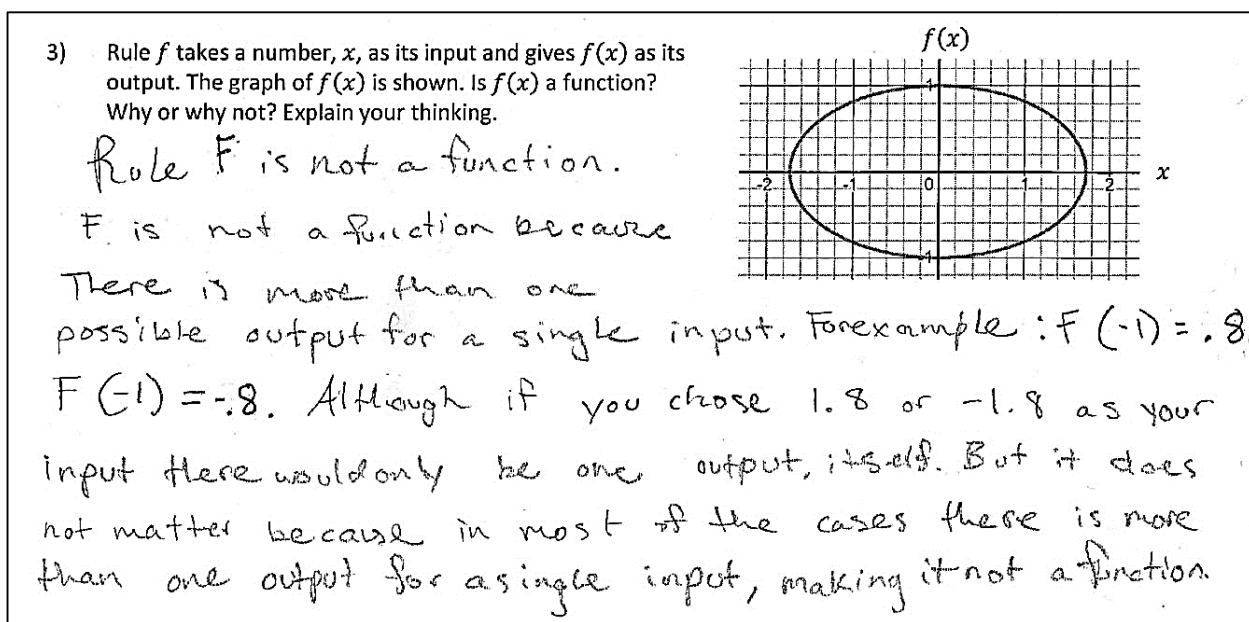 3) Rule f takes a number, x, as its input and gives f(x) as its
output. The graph of f(x) is shown. Is f(x) a function?
Why or why not? Explain your thinking.
f(x)
1
-2 -1 0 1 2
x
-1
Rule F is not a function.
F. is not a function because
There is more than one
possible output for a single input. Forexample : F (-1) = .8
F (-1) = -.8. Although if you chose 1.8 or -1.8 as your
input there would only be one output, itself. But it does
not matter because in most of the cases there is more
than one output for a single input, making it not a function.